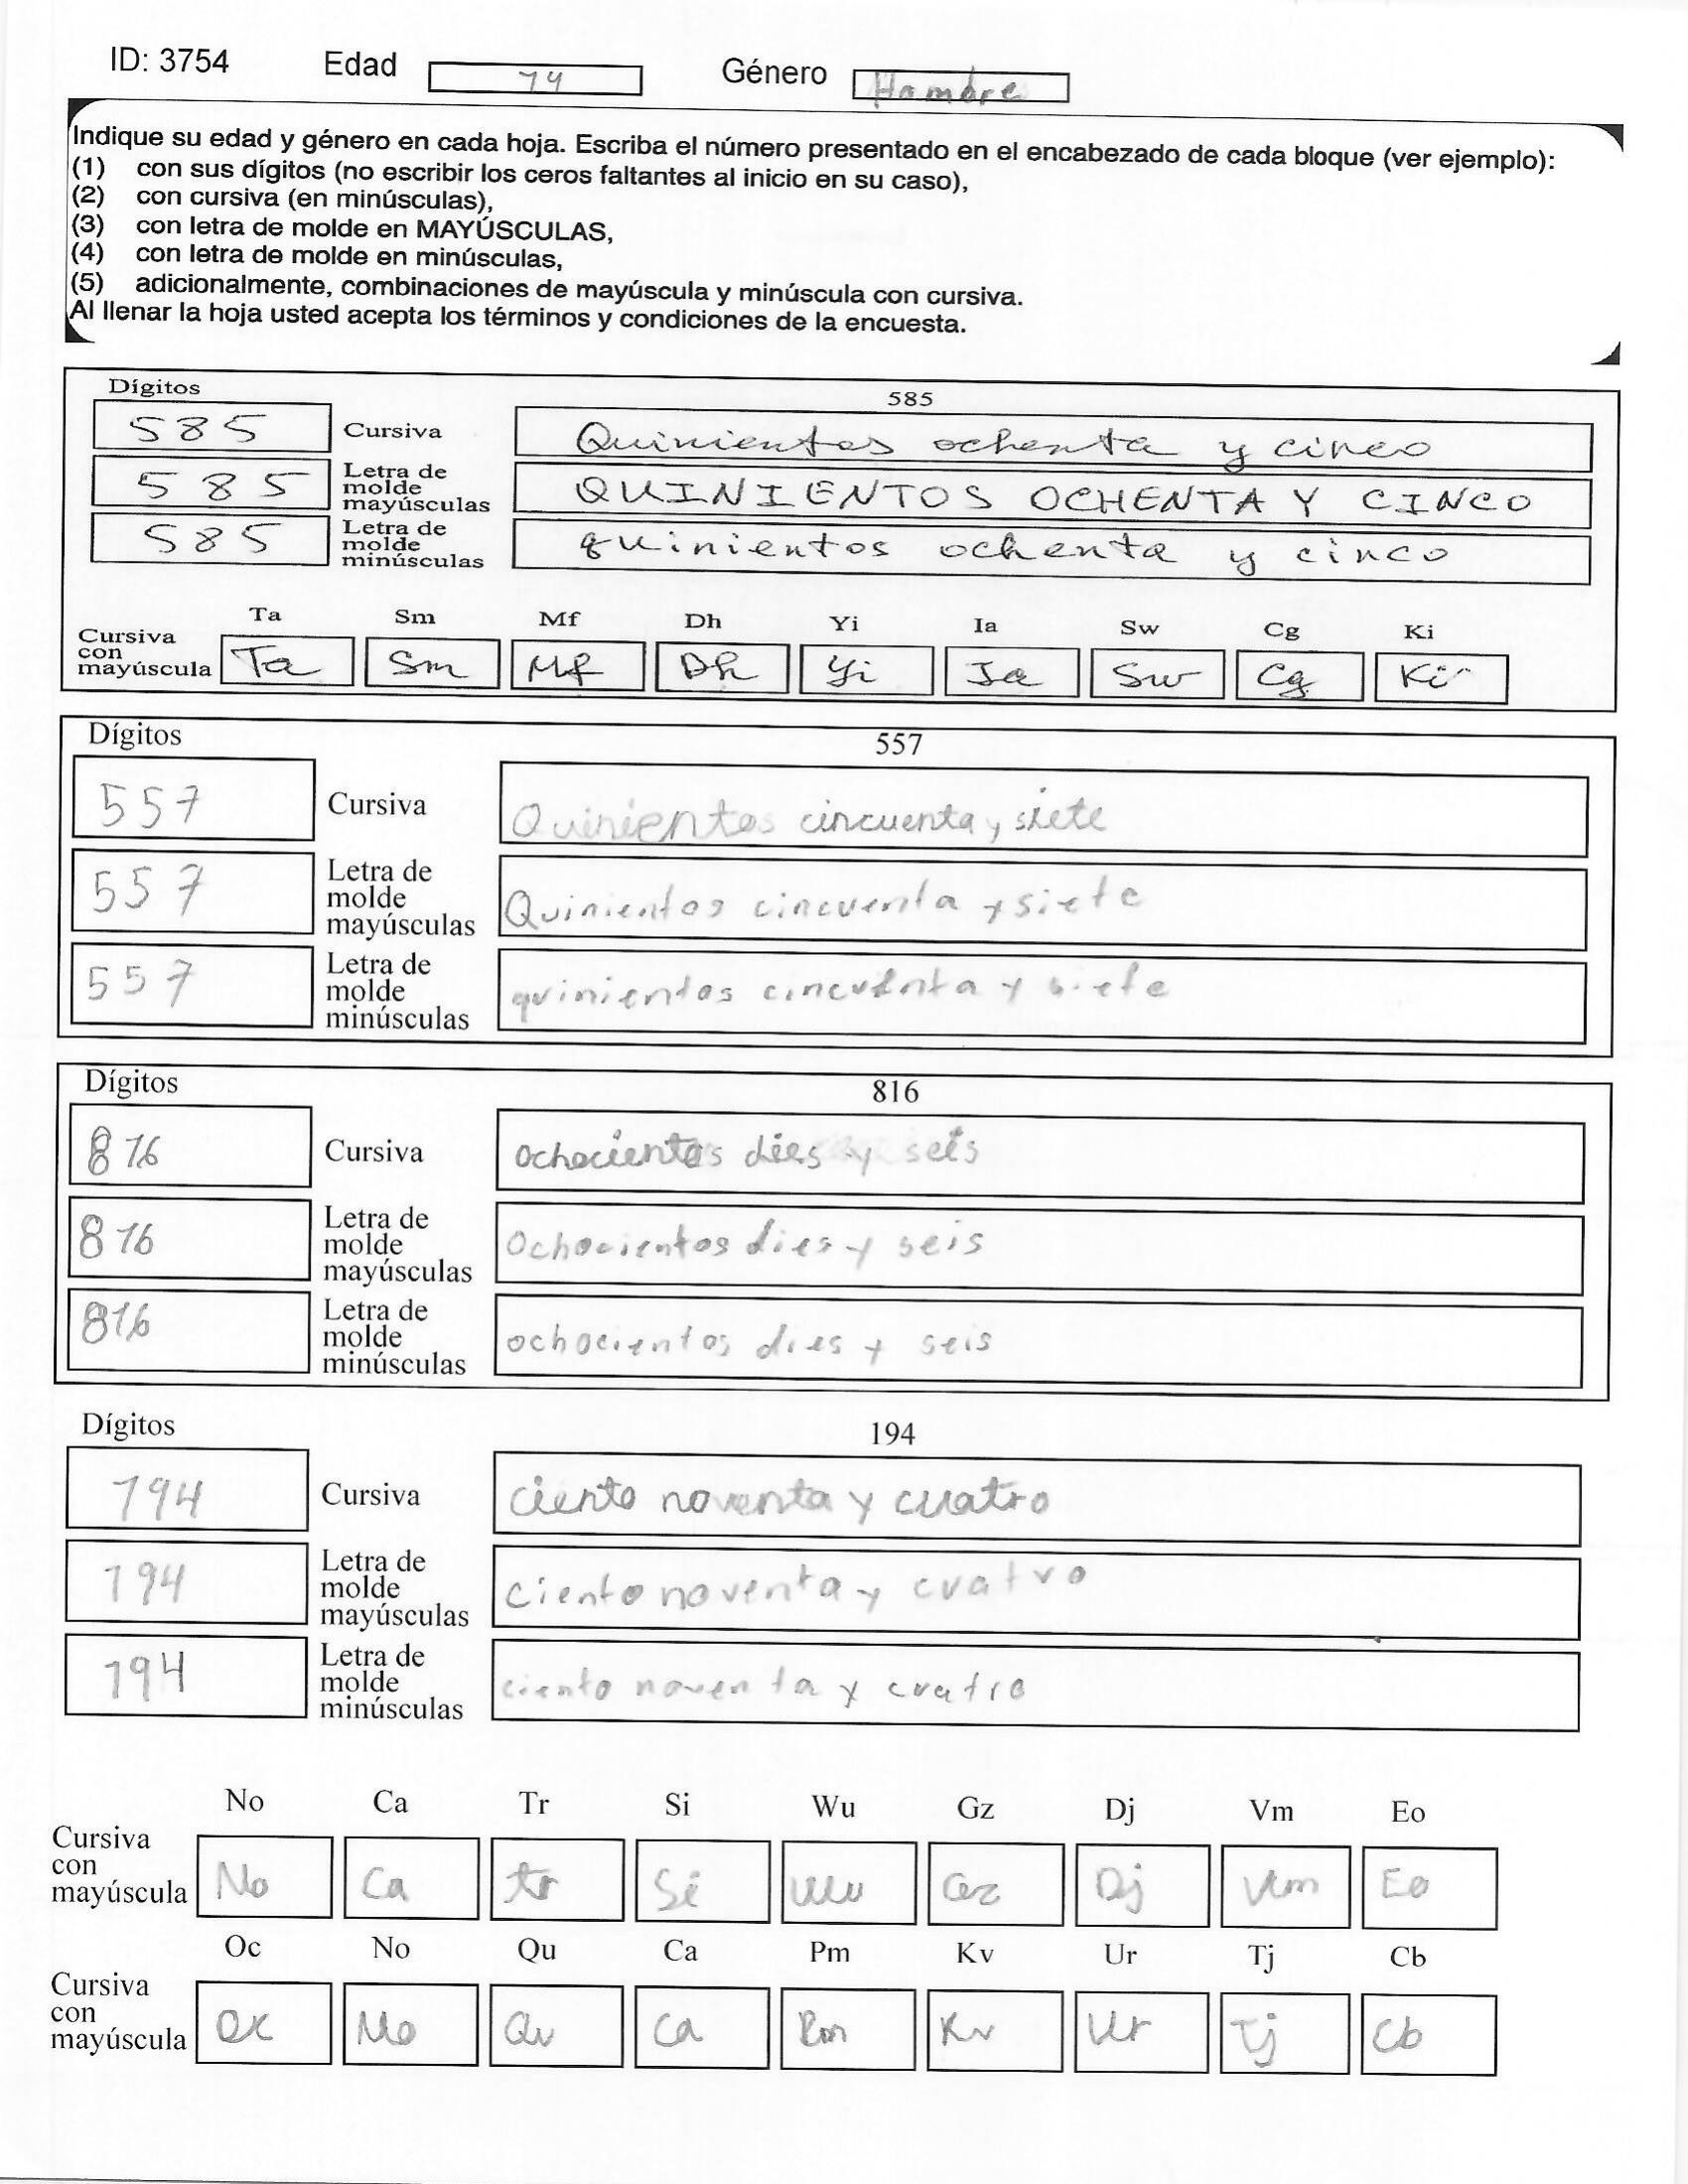 ID: 3754 Edad 14 Género Hombre
Indique su edad y género en cada hoja. Escriba el número presentado en el encabezado de cada bloque (ver ejemplo):
(1) con sus dígitos (no escribir los ceros faltantes al inicio en su caso),
(2) con cursiva (en minúsculas),
(3) con letra de molde en MAYÚSCULAS,
(4) con letra de molde en minúsculas,
(5) adicionalmente, combinaciones de mayúscula y minúscula con cursiva.
Al llenar la hoja usted acepta los términos y condiciones de la encuesta.
Dígitos 585
585 Cursiva Quinientos ochenta y cinco
585 Letra de molde mayúsculas QUINIENTOS OCHENTA Y CINCO
585 Letra de molde minúsculas quinientos ochenta y cinco
Ta Sm Mf Dh Yi Ia Sw Cg Ki
Cursiva con mayúscula Ta Sm Mf Dh Yi Ia Sw Cg Ki
Dígitos 557
557 Cursiva Quinientos cincuenta y siete
557 Letra de molde mayúsculas Quinientos cincuenta y siete
557 Letra de molde minúsculas quinientos cincuenta y siete
Dígitos 816
816 Cursiva ochocientos dies y seis
816 Letra de molde mayúsculas Ochocientos dies y seis
816 Letra de molde minúsculas ochocientos dies y seis
Dígitos 194
194 Cursiva ciento noventa y cuatro
194 Letra de molde mayúsculas Ciento noventa y cuatro
194 Letra de molde minúsculas ciento noventa y cuatro
No Ca Tr Si Wu Gz Dj Vm Eo
Cursiva con mayúscula No Ca tr Si Wu Gz Dj Vm Eo
Oc No Qu Ca Pm Kv Ur Tj Cb
Cursiva con mayúscula Oc No Qu Ca Pm Kv Ur Tj Cb